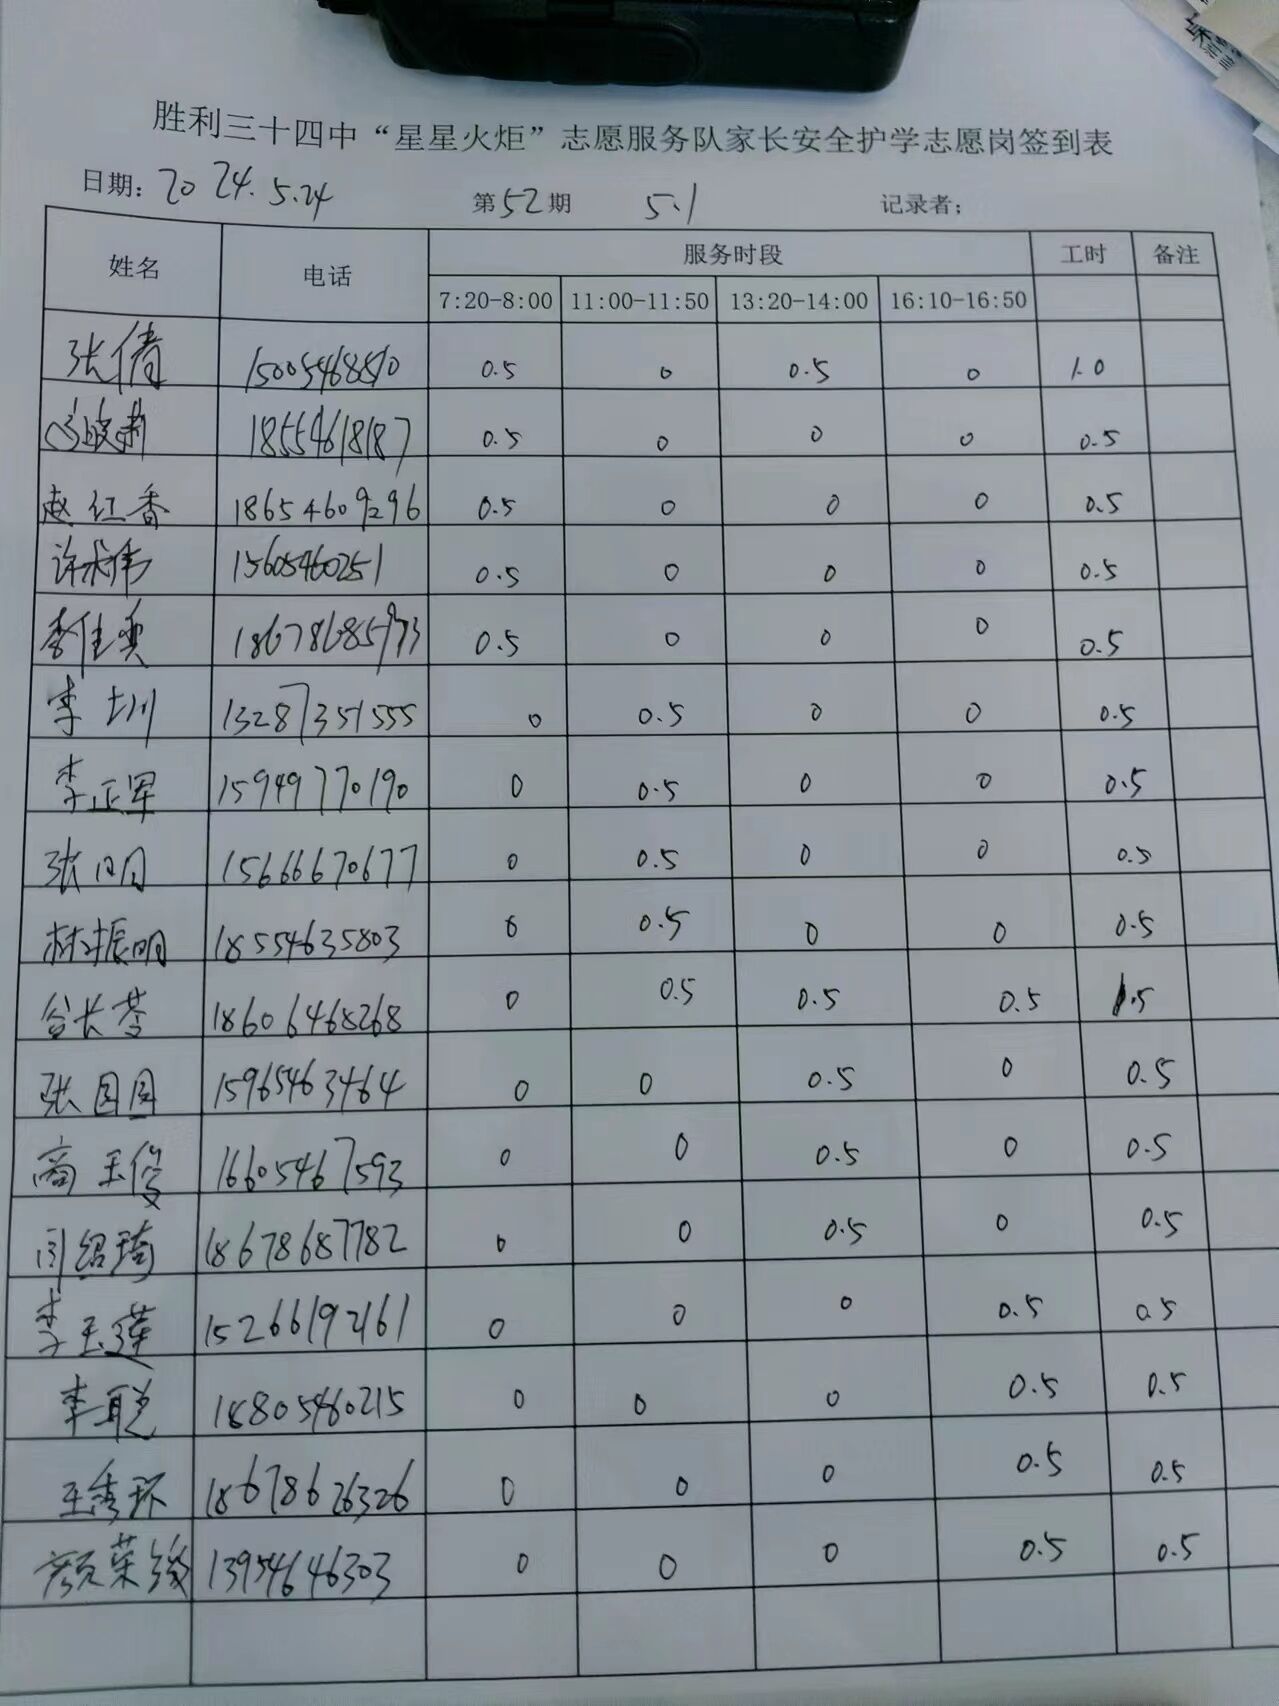 胜利三十四中“星星火炬”志愿服务队家长安全护学志愿岗签到表
日期: 2024.5.24 第52期 5.1 记录者:
姓名 电话 服务时段 工时 备注
7:20-8:00 11:00-11:50 13:20-14:00 16:10-16:50
张倩 0.5 0 0.5 0 1.0
18554618187 0.5 0 0 0 0.5
赵红香 18654609296 0.5 0 0 0 0.5
15605460251 0.5 0 0 0 0.5
李佳奥 0.5 0 0 0 0.5
李 13287351555 0 0.5 0 0 0.5
李正军 15949770190 0 0.5 0 0 0.5
张明 15666670677 0 0.5 0 0 0.5
林振明 18554635803 0 0.5 0 0 0.5
谷长苓 18606468268 0 0.5 0.5 0.5 1.5
张圆圆 15965463464 0 0 0.5 0 0.5
商玉俊 16605467593 0 0 0.5 0 0.5
闫绍琦 18678687782 0 0 0.5 0 0.5
李玉莲 15266192161 0 0 0 0.5 0.5
李聪 18805460215 0 0 0 0.5 0.5
王秀环 18678626326 0 0 0 0.5 0.5
颜荣 13954646303 0 0 0 0.5 0.5